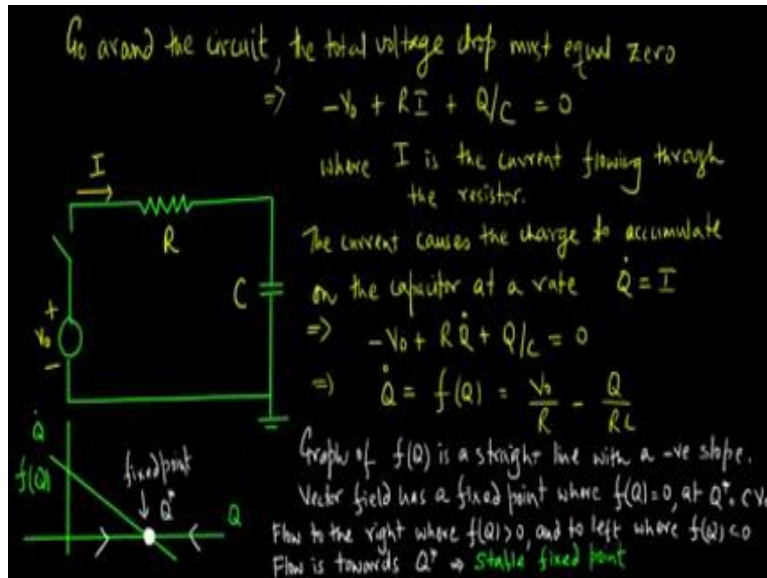 Go around the circuit, the total voltage drop must equal zero
⇒ -V₀ + RI + Q/C = 0
where I is the current flowing through
the resistor.
The current causes the charge to accumulate
on the capacitor at a rate Q̇ = I
⇒ -V₀ + RQ̇ + Q/C = 0
⇒ Q̇ = f(Q) = V₀/R - Q/RC
I
R
C
+
V₀
-
Q̇
f(Q)
fixed point
Q*
Q
Graph of f(Q) is a straight line with a -ve slope.
Vector field has a fixed point where f(Q)=0, at Q* = CV₀
Flow to the right where f(Q)>0, and to left where f(Q)<0
Flow is towards Q* ⇒ stable fixed point